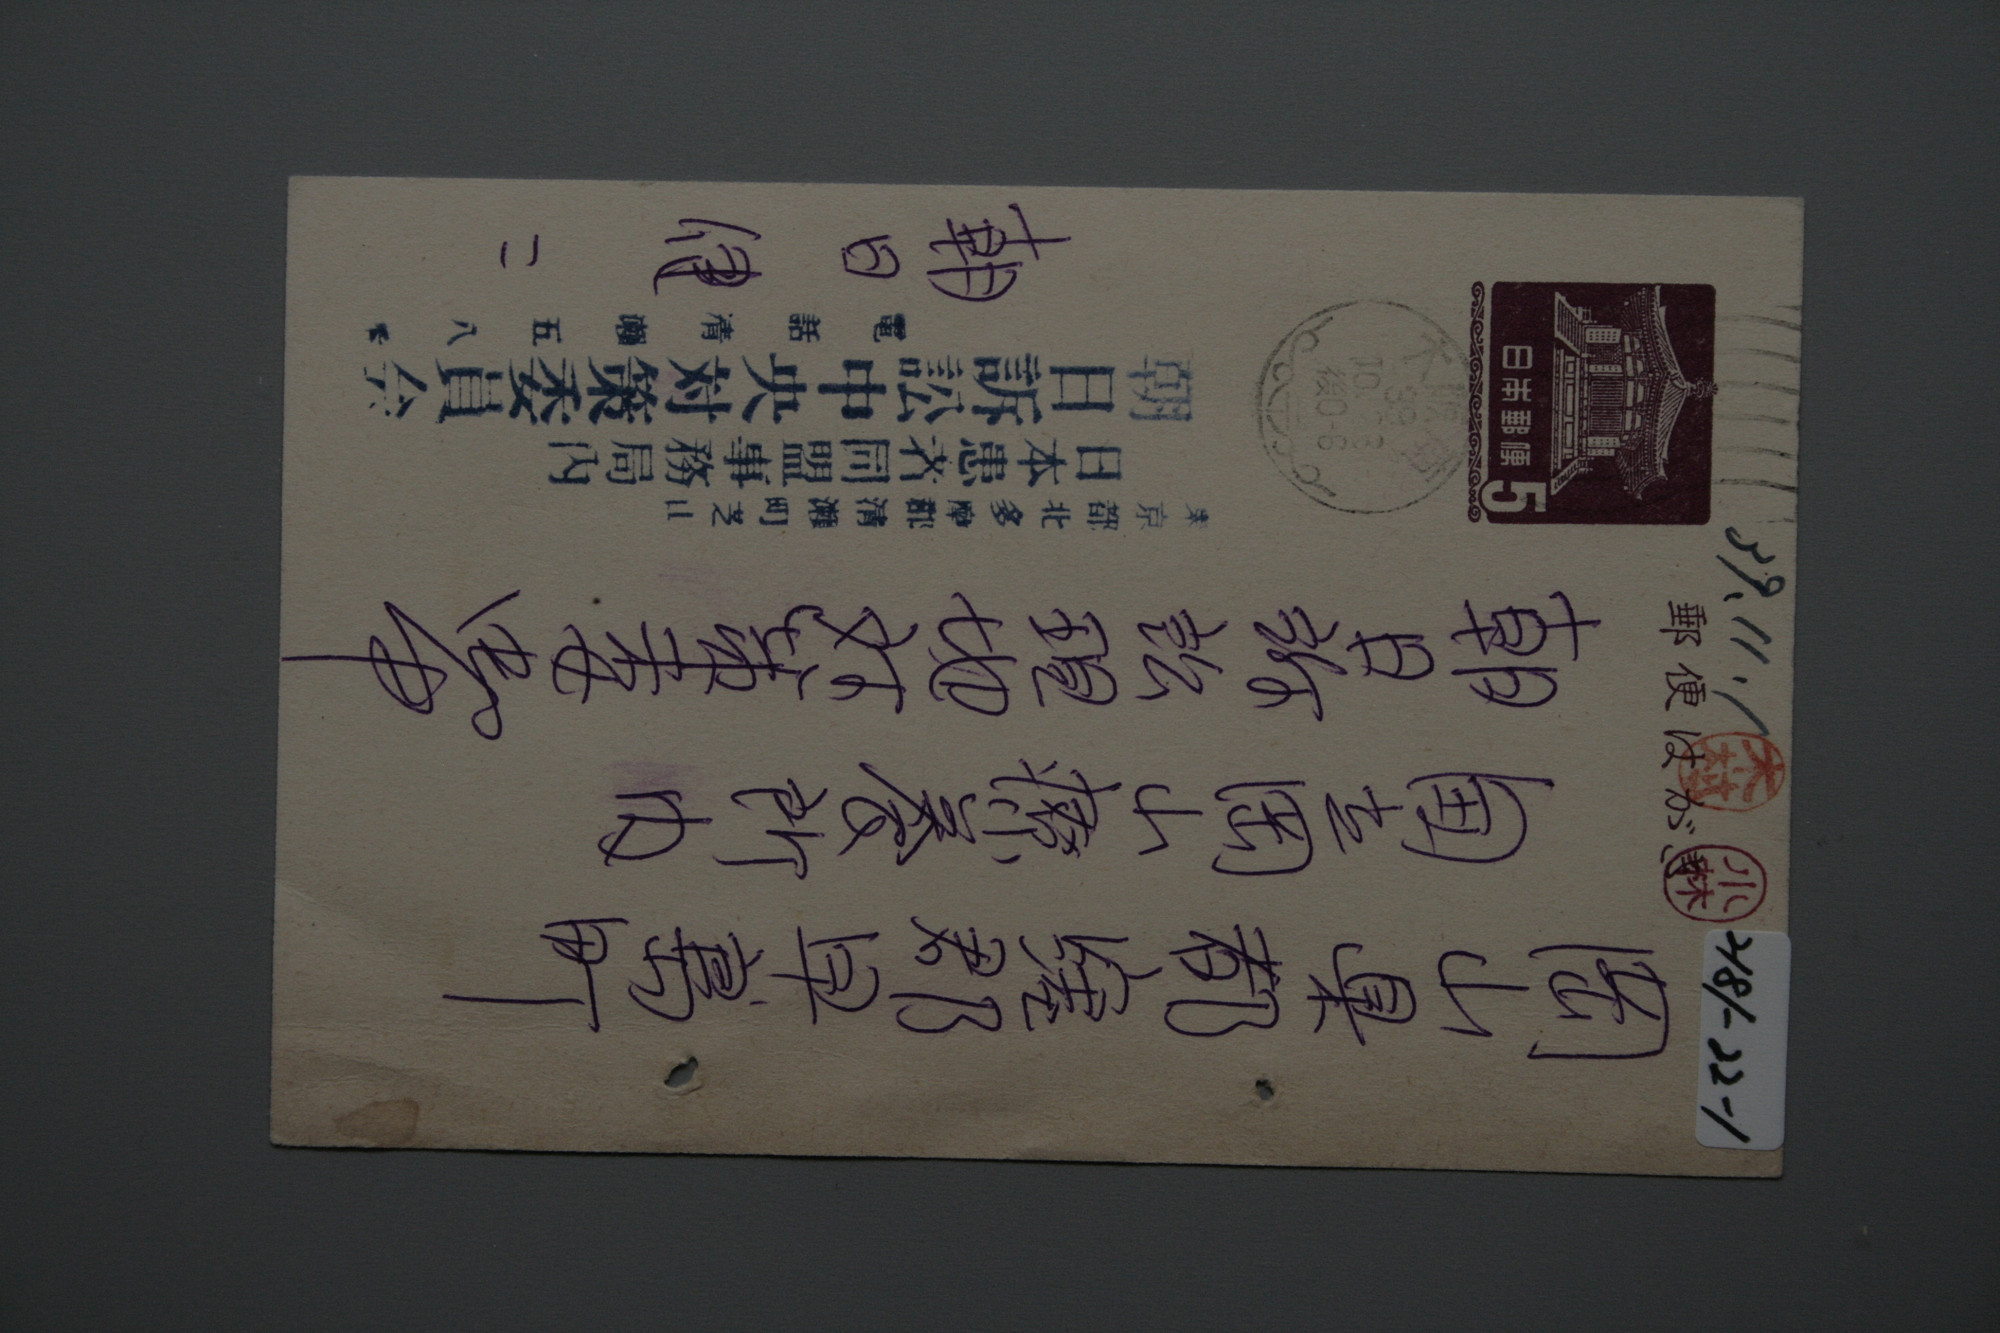 郵便はがき
39.11.1
木村
小林
日本郵便
5
後0-6
岡山県都窪郡早島町
国立岡山療養所内
朝日訴訟現地対策委員
東京都北多摩郡清瀬町芝山
日本患者同盟事務局内
朝日訴訟中央対策委員会
電話清瀬五八番
朝日健二